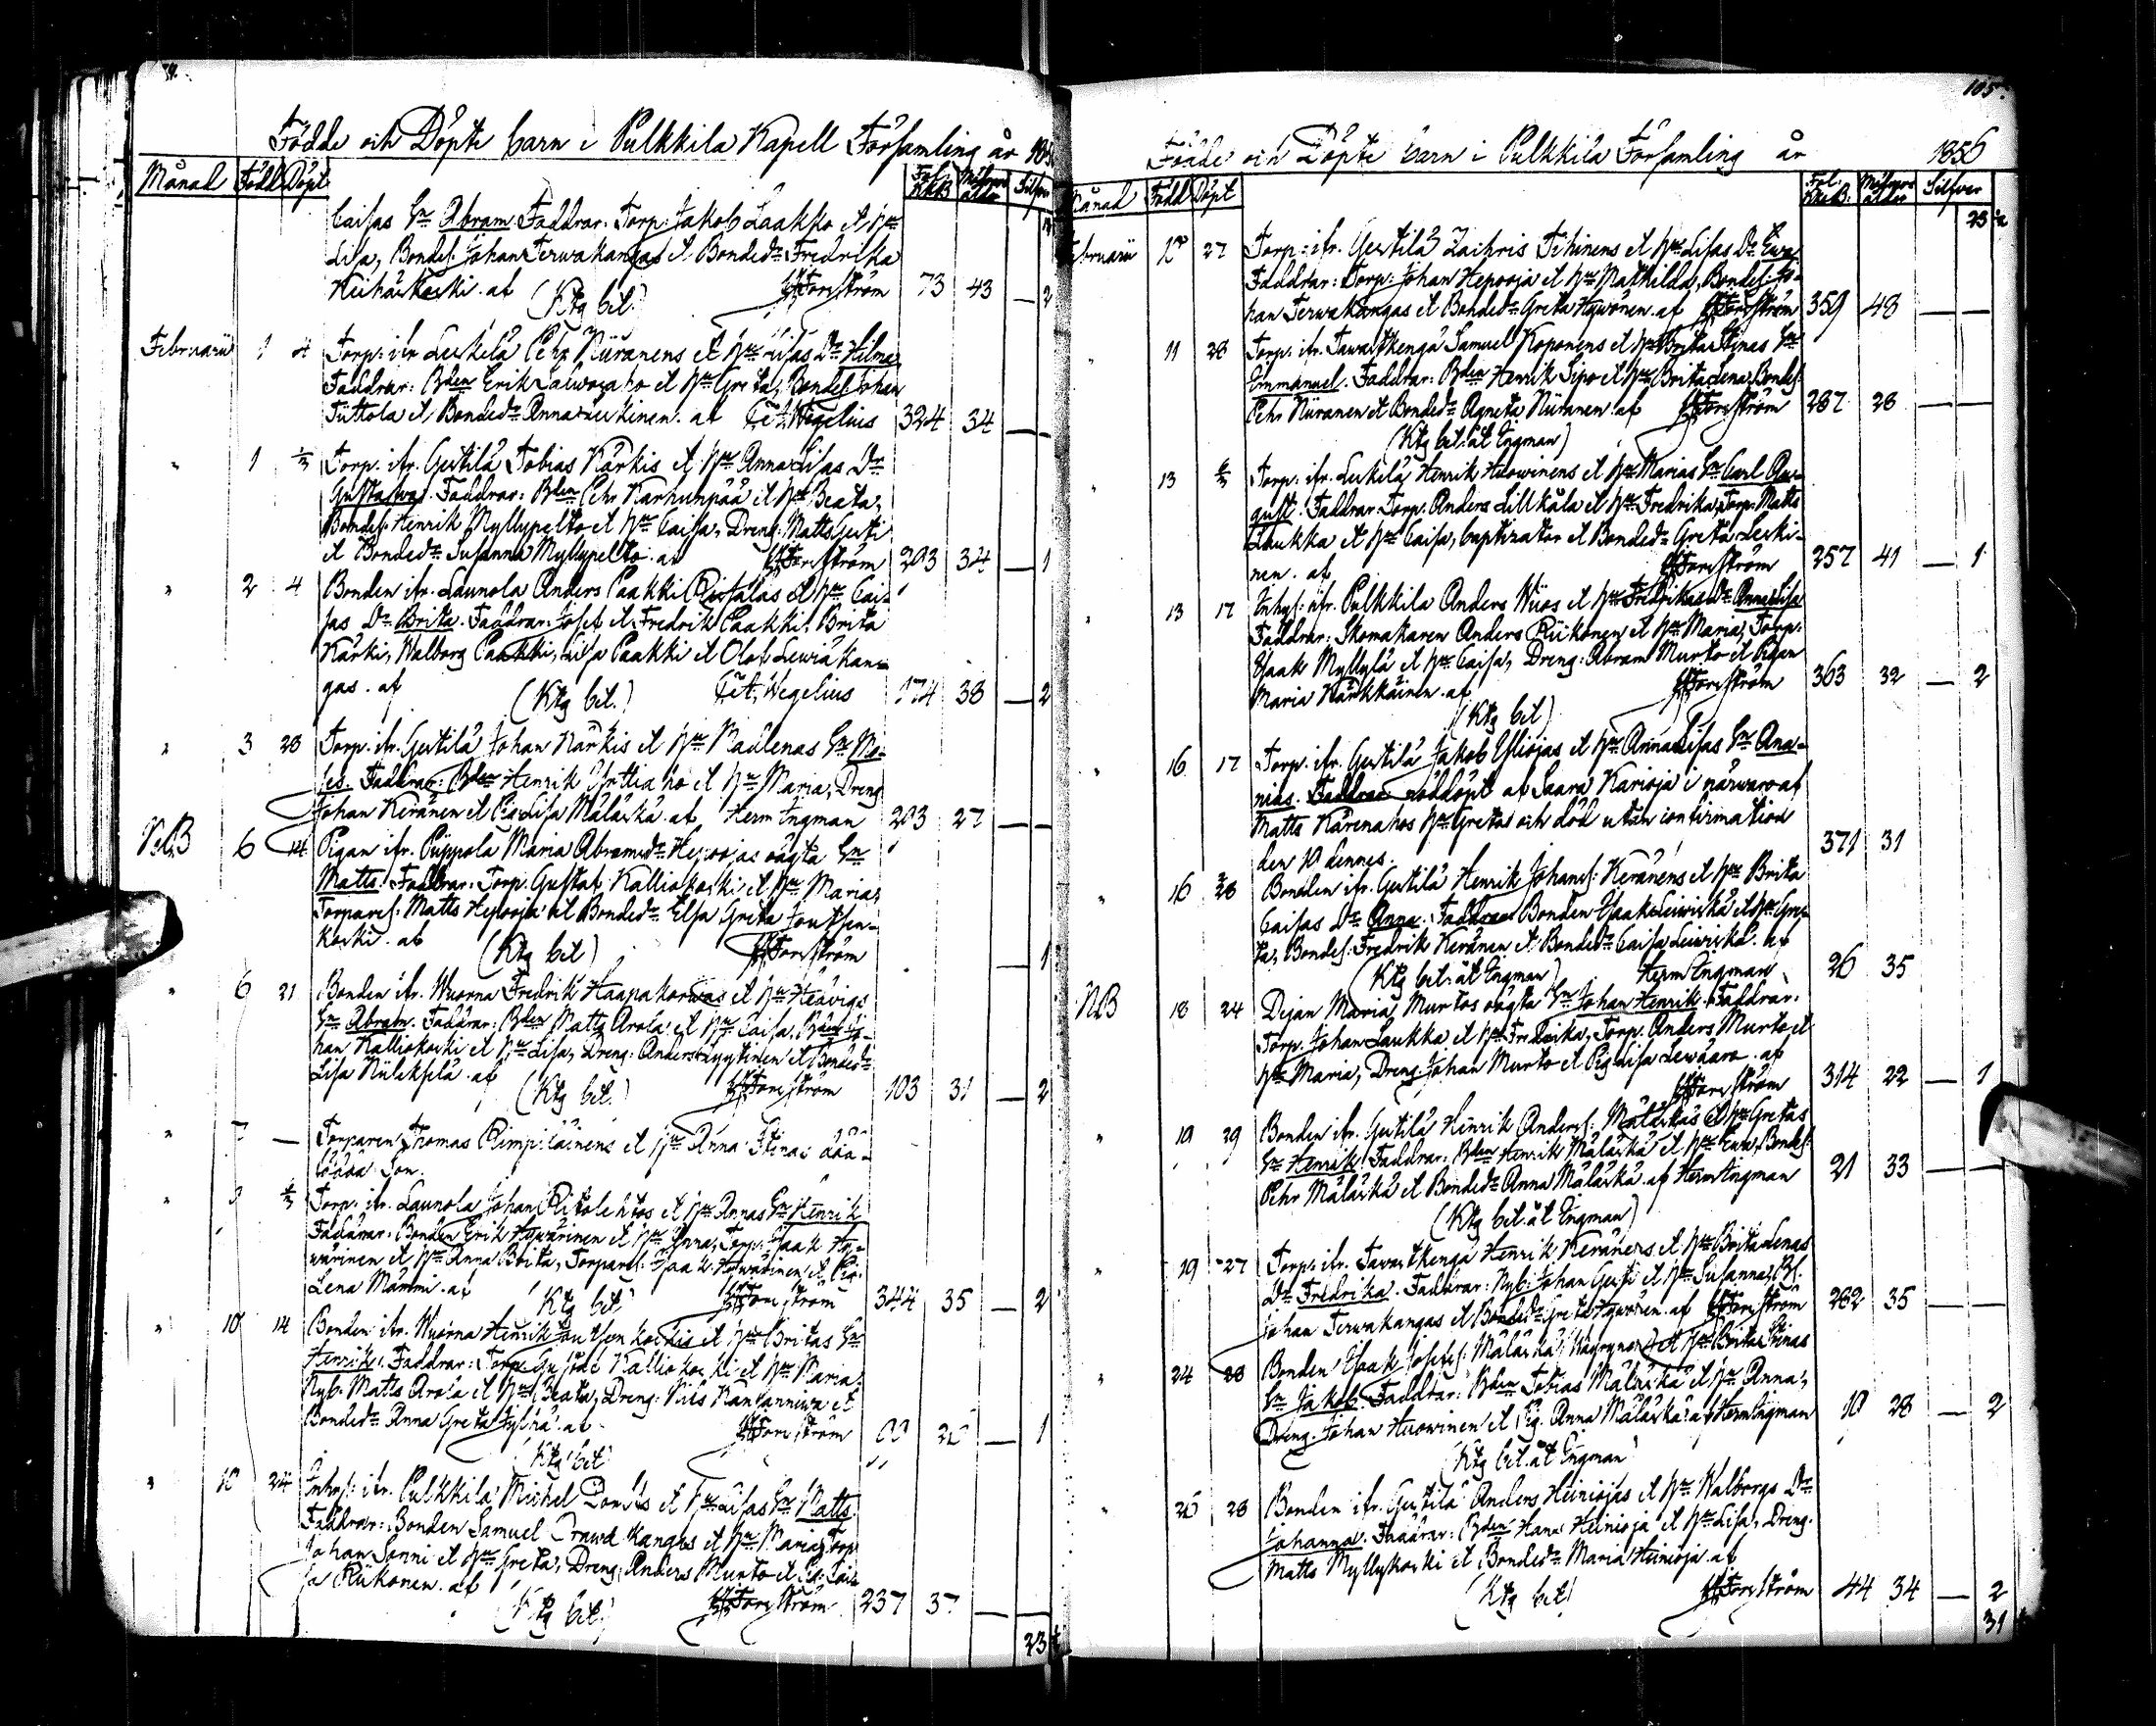 Födde och Döpte barn i Pulkkila Kapell Församling år
Månad Född Döpt Fol. KkB Mödrars ålder Silfver
Caisas Sn Abram. Faddrar: Torp. Jakob Laakko et Hu
Lisa, Bondes. Johan Terwakangas et Bondedr Fredrika
af (Ktg bet.) Forsström 73 43 — 2
Februarii 1 4 Torp. ifr. Leskelä Pehr Niiranens et Hu Lisas Dr Hilma
Faddrar: Bden Erik et Hu Greta, Bondes. Johan
Tuttola et Bondedr Anna Leskinen. af Wegelius 324 34 —
" 1 Torp. ifr. Gestilä Tobias Kärkis et Hu Anna Lisas Dr
Gustawa. Faddrar: Bden Pehr Karhunpää et Hu Beata,
Bondes. Henrik Myllypelto et Hu Caisa, Dreng. Matts Gesti
et Bondedr Susanna Myllypelto. af Forsström 203 34 — 1
" 2 4 Bonden ifr. Launola Anders Paakki et Hu Cai-
sas Dr Brita. Faddrar: Josef et Fredrik Paakki, Brita
Kärki, Walborg Paakki, Lisa Paakki et Olof Lewiäkan-
gas. af (Ktg bet.) Wegelius 174 38 — 2
" 3 28 Torp. ifr. Gestilä Johan Kärkis et Hu Madlenas Sn Mo-
ses. Faddrar: Bden Henrik et Hu Maria, Dreng
Johan Keränen et Pig. Lisa Mäläskä. af Herm Ingman 203 27 —
N.B 6 14 Pigan ifr. Piippola Maria Abramsdr Hepoojas oägta Sn
Matts. Faddrar: Torp. Gustaf Kalliokoski et Hu Maria,
Torpares. Matts Hepooja et Bondedr Elsa Greta Joutsen-
koski. af (Ktg bet) Forsström — 1
" 6 21 Bonden ifr. Wuorna Fredrik Haapakorwas et Hu Hedvigs
Sn Abram. Faddrar: Bden Matts Arola et Hu Caisa, Jo-
han Kalliokoski et Hu Lisa, Dreng. Anders et Bondedr
Lisa af (Ktg bet.) Forsström 103 31 — 2
" 7 — Torparen Thomas Rimpiläinens et Hu Anna Stinas död-
födda Son.
" 9 Torp. ifr. Launola Johan Ritolehtos et Hu Annas Sn Henrik
Faddrar: Bonden Erik Hywärinen et Hu Anna, Torp. Isaak Hy-
wärinen et Hu Anna Brita, Torpares. Isaak Hywärinen et Pig.
Lena Mämmi. af (Ktg bet) Forsström 344 35 — 2
" 10 14 Bonden ifr. Wuorna Henrik Joutsenkoskis et Hu Britas Sn
Henrik. Faddrar: Torp. Gustaf Kalliokoski et Hu Maria,
Nyb. Matts Arola et Hu Beata, Dreng. Nils Kantanniwa et
Bondedr Anna Greta af Forsström — 1
(Ktg bet)
" 10 24 Inhys. ifr. Pulkkila Michel et Hu Lisas Sn Matts.
Faddrar: Bonden Samuel et Hu Maria, Torp
Johan Sonni et Hu Greta, Dreng. Anders Murto et Pig. Cai-
sa Riikonen. af (Ktg bet.) Forsström 237 37 —
23
105.
Födde och Döpte barn i Pulkkila Församling år 1856
Månad Född Döpt Fol. KkB: Mödrars ålder Silfver
23
Februarii 27 Torp. ifr. Gestilä Zachris Tihinens et Hu Lisas Dr Ewa
Faddrar: Torp. Johan Hepooja et Hu Mathilda, Bondes. Jo-
han Terwakangas et Bondedr Greta Hywönen. af Forsström 359 48 — —
" 11 28 Torp. ifr. Tawastkenga Samuel Koponens et Hu Brita Stinas Sn
Emmanuel. Faddrar: Bden Henrik Sipo et Hu Brita Lena, Bondes.
Pehr Niiranen et Bondedr Agneta Niiranen. af Forsström 287 28 — —
(Ktg bet. åt Ingman)
" 13 Torp. ifr. Leskelä Henrik Huowinens et Hu Marias Sn Carl Au-
gust. Faddrar: Torp. Anders Lillkåla et Hu Fredrika, Torp. Matts
Laukka et Hu Caisa, baptizator et Bondedr Greta Leski-
nen. af Forsström 257 41 — 1
" 13 17 Inhys. ifr. Pulkkila Anders Wiios et Hu Fredrikas Dr Anna Lisa
Faddrar: Skomakaren Anders Riikonen et Hu Maria, Torp.
Isaak Myllylä et Hu Caisa, Dreng. Abram Murto et Pigan
Maria Kärkkäinen. af Forsström 363 32 — 2
(Ktg bet)
" 16 17 Torp. ifr. Gestilä Jakob Ylioja​s et Hu Anna Lisas Sn Ana-
nias. Faddrar nöddöpt af Saara Karioja i närwaro af
Matts Kärenahos Hu Greta och död utan confirmation
den 19 dennes. 371 31
" 16 28 Bonden ifr. Gestilä Henrik Johans. Keränens et Hu Brita
Caisas Dr Anna. Faddrar Bonden Isaak Leiwiskä et Hu Gre-
ta, Bondes. Fredrik Keränen et Bondedr Caisa Leiwiskä. af
(Ktg bet. åt Ingman) Herm Ingman 26 35
NB 18 24 Dejan Maria Murtos oägta Sn Johan Henrik. Faddrar:
Torp. Johan Laukka et Hu Fredrika, Torp. Anders Murto et
Hu Maria, Dreng. Johan Murto et Pig. Lisa af
Forsström 314 22 — 1
" 19 29 Bonden ifr. Gestilä Henrik Anders. Mäläskäs et Hu Gretas
Sn Henrik. Faddrar: Bden Henrik Mäläskä et Hu Ewa, Bondes.
Pehr Mäläskä et Bondedr Anna Mäläskä. af Herm Ingman 21 33 — —
(Ktg bet. åt Ingman)
" 19 27 Torp. ifr. Tawastkenga Henrik Keränens et Hu Brita Lenas
Dr Fredrika. Faddrar: Nyb. Johan Gesti et Hu Susanna,
Johan Terwakangas et Bondedr Greta Hywönen. af Forsström 282 35 — —
" 24 28 Bonden Isaak Josefs. Mäläskä et Hu Brita Stinas
Sn Jakob. Faddrar: Bden Tobias Mäläskä et Hu Anna,
Dreng. Johan Huowinen et Pig. Anna Mäläskä. af Herm Ingman 10 28 — 2
(Ktg bet. åt Ingman)
" 26 28 Bonden ifr. Gestilä Anders Heiniojas et Hu Walborgs Dr
Johanna. Faddrar: Bden Hans Heinioja et Hu Lisa, Dreng.
Matts Myllykoski et Bondedr Maria Heinioja. af
(Ktg bet) Forsström 44 34 — 2
31